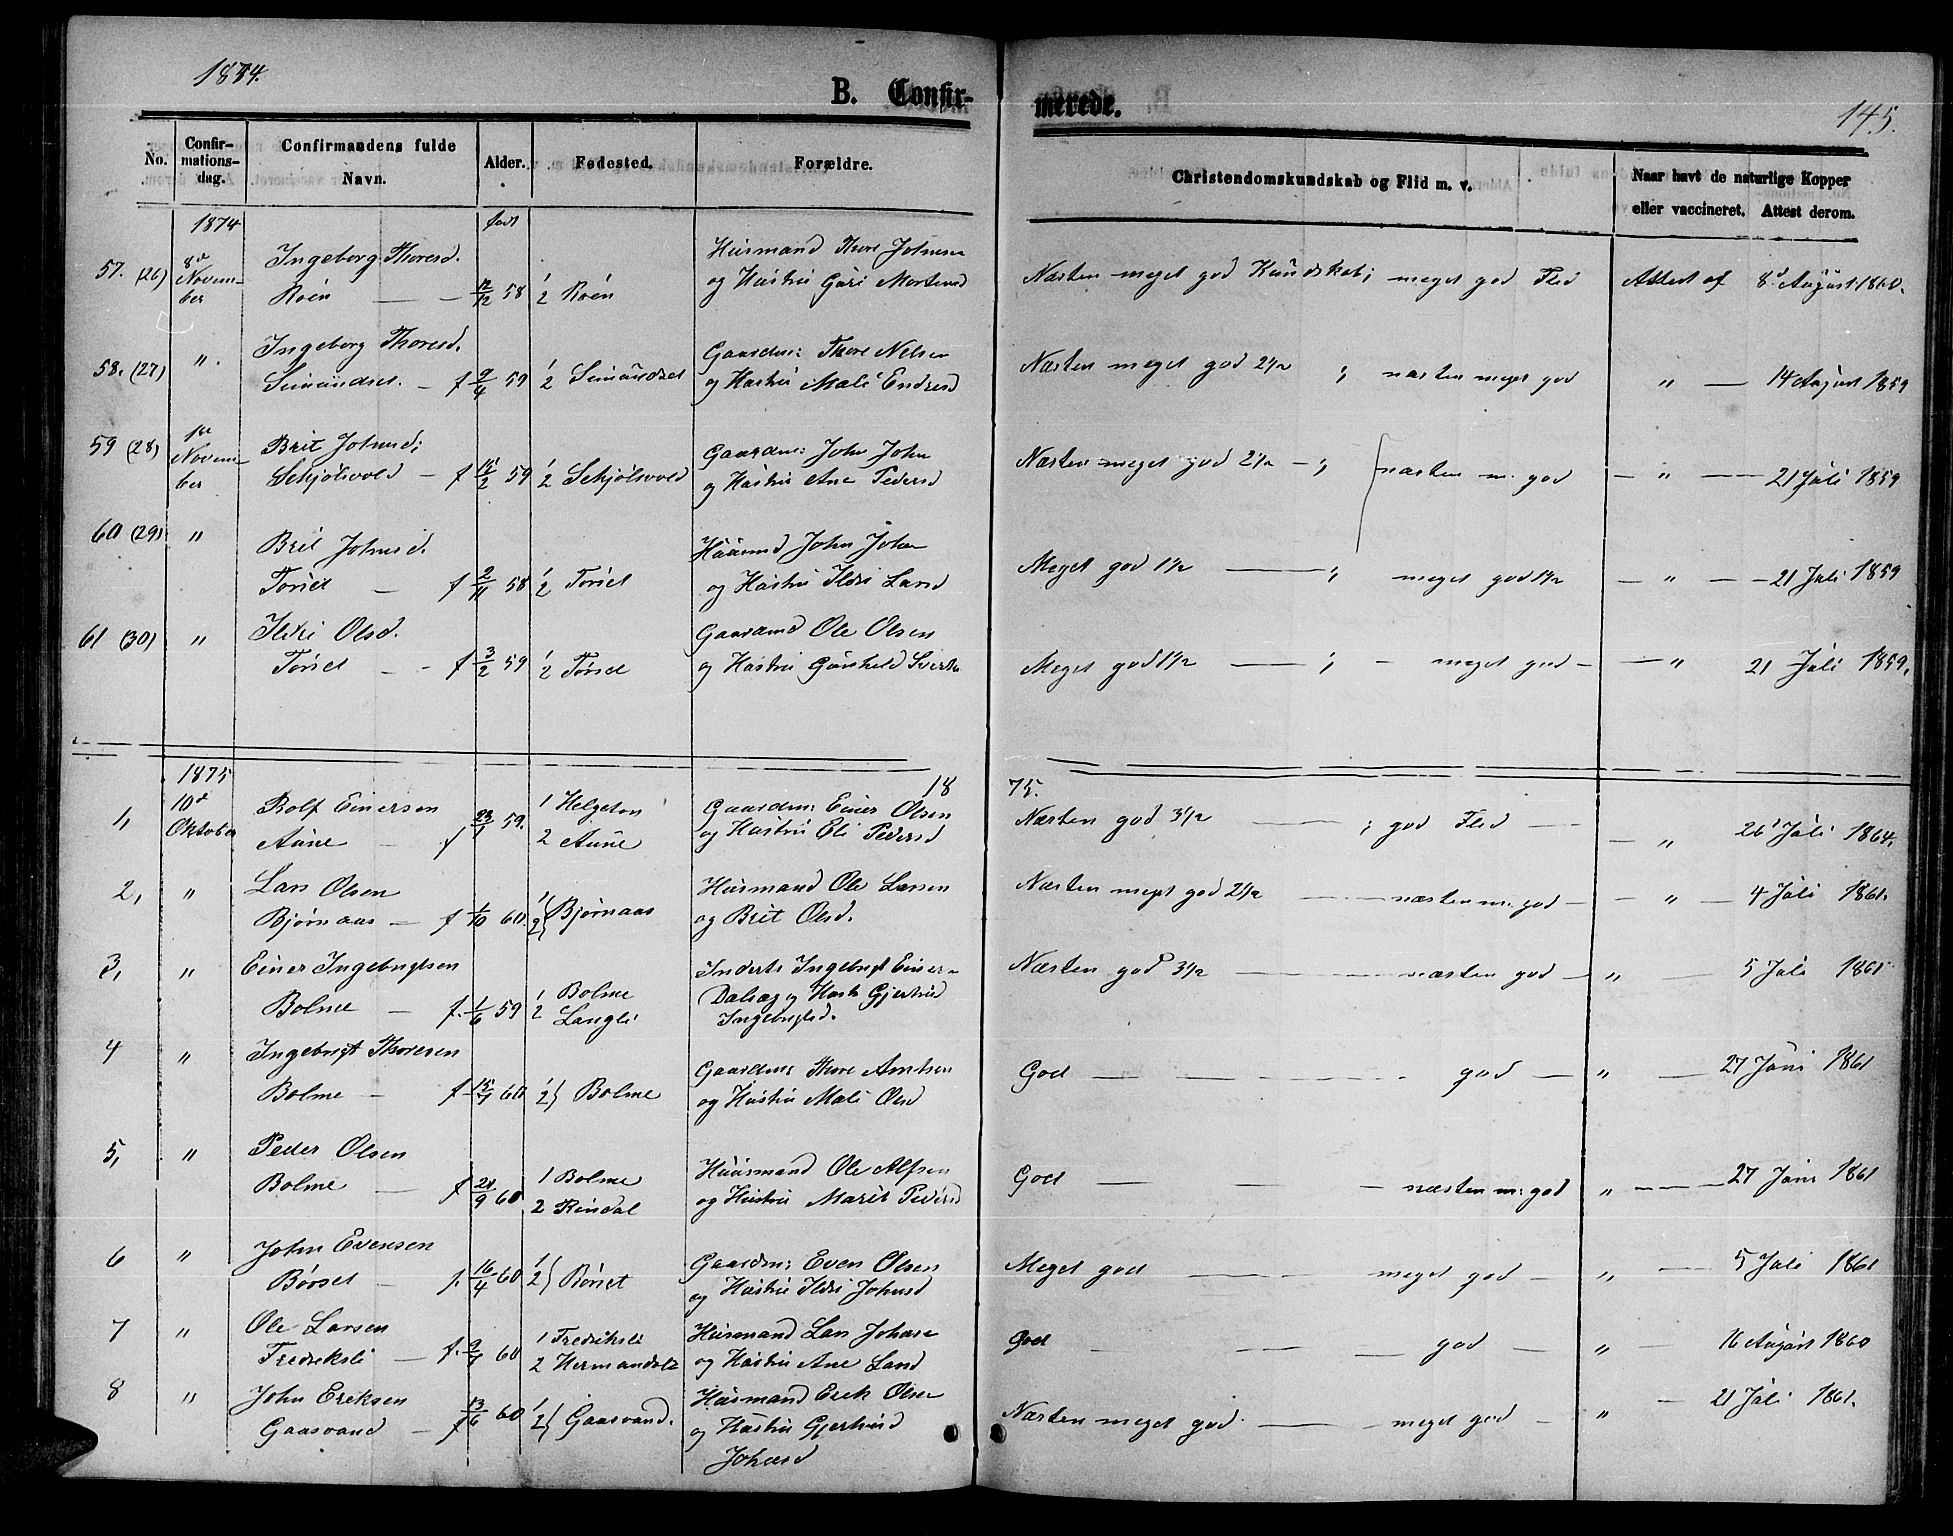 1874.
B. Confirmerede.
145.
No.
Confirmationsdag.
Confirmandens fulde Navn.
Alder.
Fødested.
Forældre.
Christendomskundskab og Flid m. v.
Naar havt de naturlige Kopper eller vaccineret. Attest derom.
1874
født
57. (26) 8d November Ingeborg Thoresd. 12/12 58 1 Husmand Thore Johnsen Næsten meget god Kundskab; meget god Flid Attest af 8d August 1860.
Roen 2 Roen og Hustru Guri Mortensd
58. (27) " Ingeborg Thoresd. Gaardm: Thore Nelsen Næsten meget god 2 1/2 ; næsten meget god " 14 August 1859
f 9/4 59 1 2 og Hustru Mali Endresd
59 (28) 1ste November Brit Johnsd: Gaardm: John John Næsten meget god 2 1/2 ; næsten m. god " 21 Juli 1859
Schjølsvold f 15/2 59 1 2 Schjølsvold og Hustru Ane Pedersd
60 (29) " Brit Johnsd. Huusmd John John Meget god 1 1/2 ; meget god 1 1/2 " 21 Juli 1859
f 2/11 58 1 2 og Hustru Ildri Larsd
61 (30) " Ildri Olsd. Gaardmd Ole Olsen Meget god 1 1/2 ; meget god " 21 Juli 1859.
f 3/2 59 1 2 og Hustru Gunhild
1875
1875.
1, 10d Oktober Rolf Einersen 1 Helgeton Gaardm: Einer Olsen Næsten god 3 1/2 ; god Flid " 26' Juli 1864.
Aune f 59. 2 Aune og Hustru Eli Pedersd
2, " Lars Olsen Husmand Ole Larsen Næsten meget god 2 1/2 næsten m. god " 4 Juli 1861.
Bjørnaas f. 1/10 60. 1 2 } Bjørnaas og Brit Olsd.
3, " Einer Ingebrigtsen Inderst: Ingebrigt Einer Næsten god 3 1/2 næsten god " 5 Juli 1861
Bolme f. 1/6 59 1 Bolme og Hustr Gjertrud
2 Langli Ingebrigtsd.
4 " Ingebrigt Thoresen Gaardm: Thore Arntsen God god " 27 Juni 1861
Bolme f 60 1 2 } Bolme og Hustru Mali Olsd
5, " Peder Olsen 1 Bolme Huusmand Ole Alfsen God næsten m: god " 27 Juni 1861
Bolme f 21/9 60 2 Rindal og Hustru Marit Pedersd
6 " John Evensen Gaardm: Even Olsen Meget god meget god " 5 Juli 1861
Børset f. 16/4 60 1 2 } Børset og Hustru Ildri Johnsd
7 " Ole Larsen 1 Fredriksli Husmand Lars Johnse God god " 16 August 1860
Fredriksli f. 60 2 og Hustru Ane Larsd
8 " John Ereksen Husmand Erek Olsen Næsten meget god meget god " 21 Juli 1861.
Gaasvand f 13/6 60 1 2 } Gaasvand. og Hustru Gjertrud
Johnsd